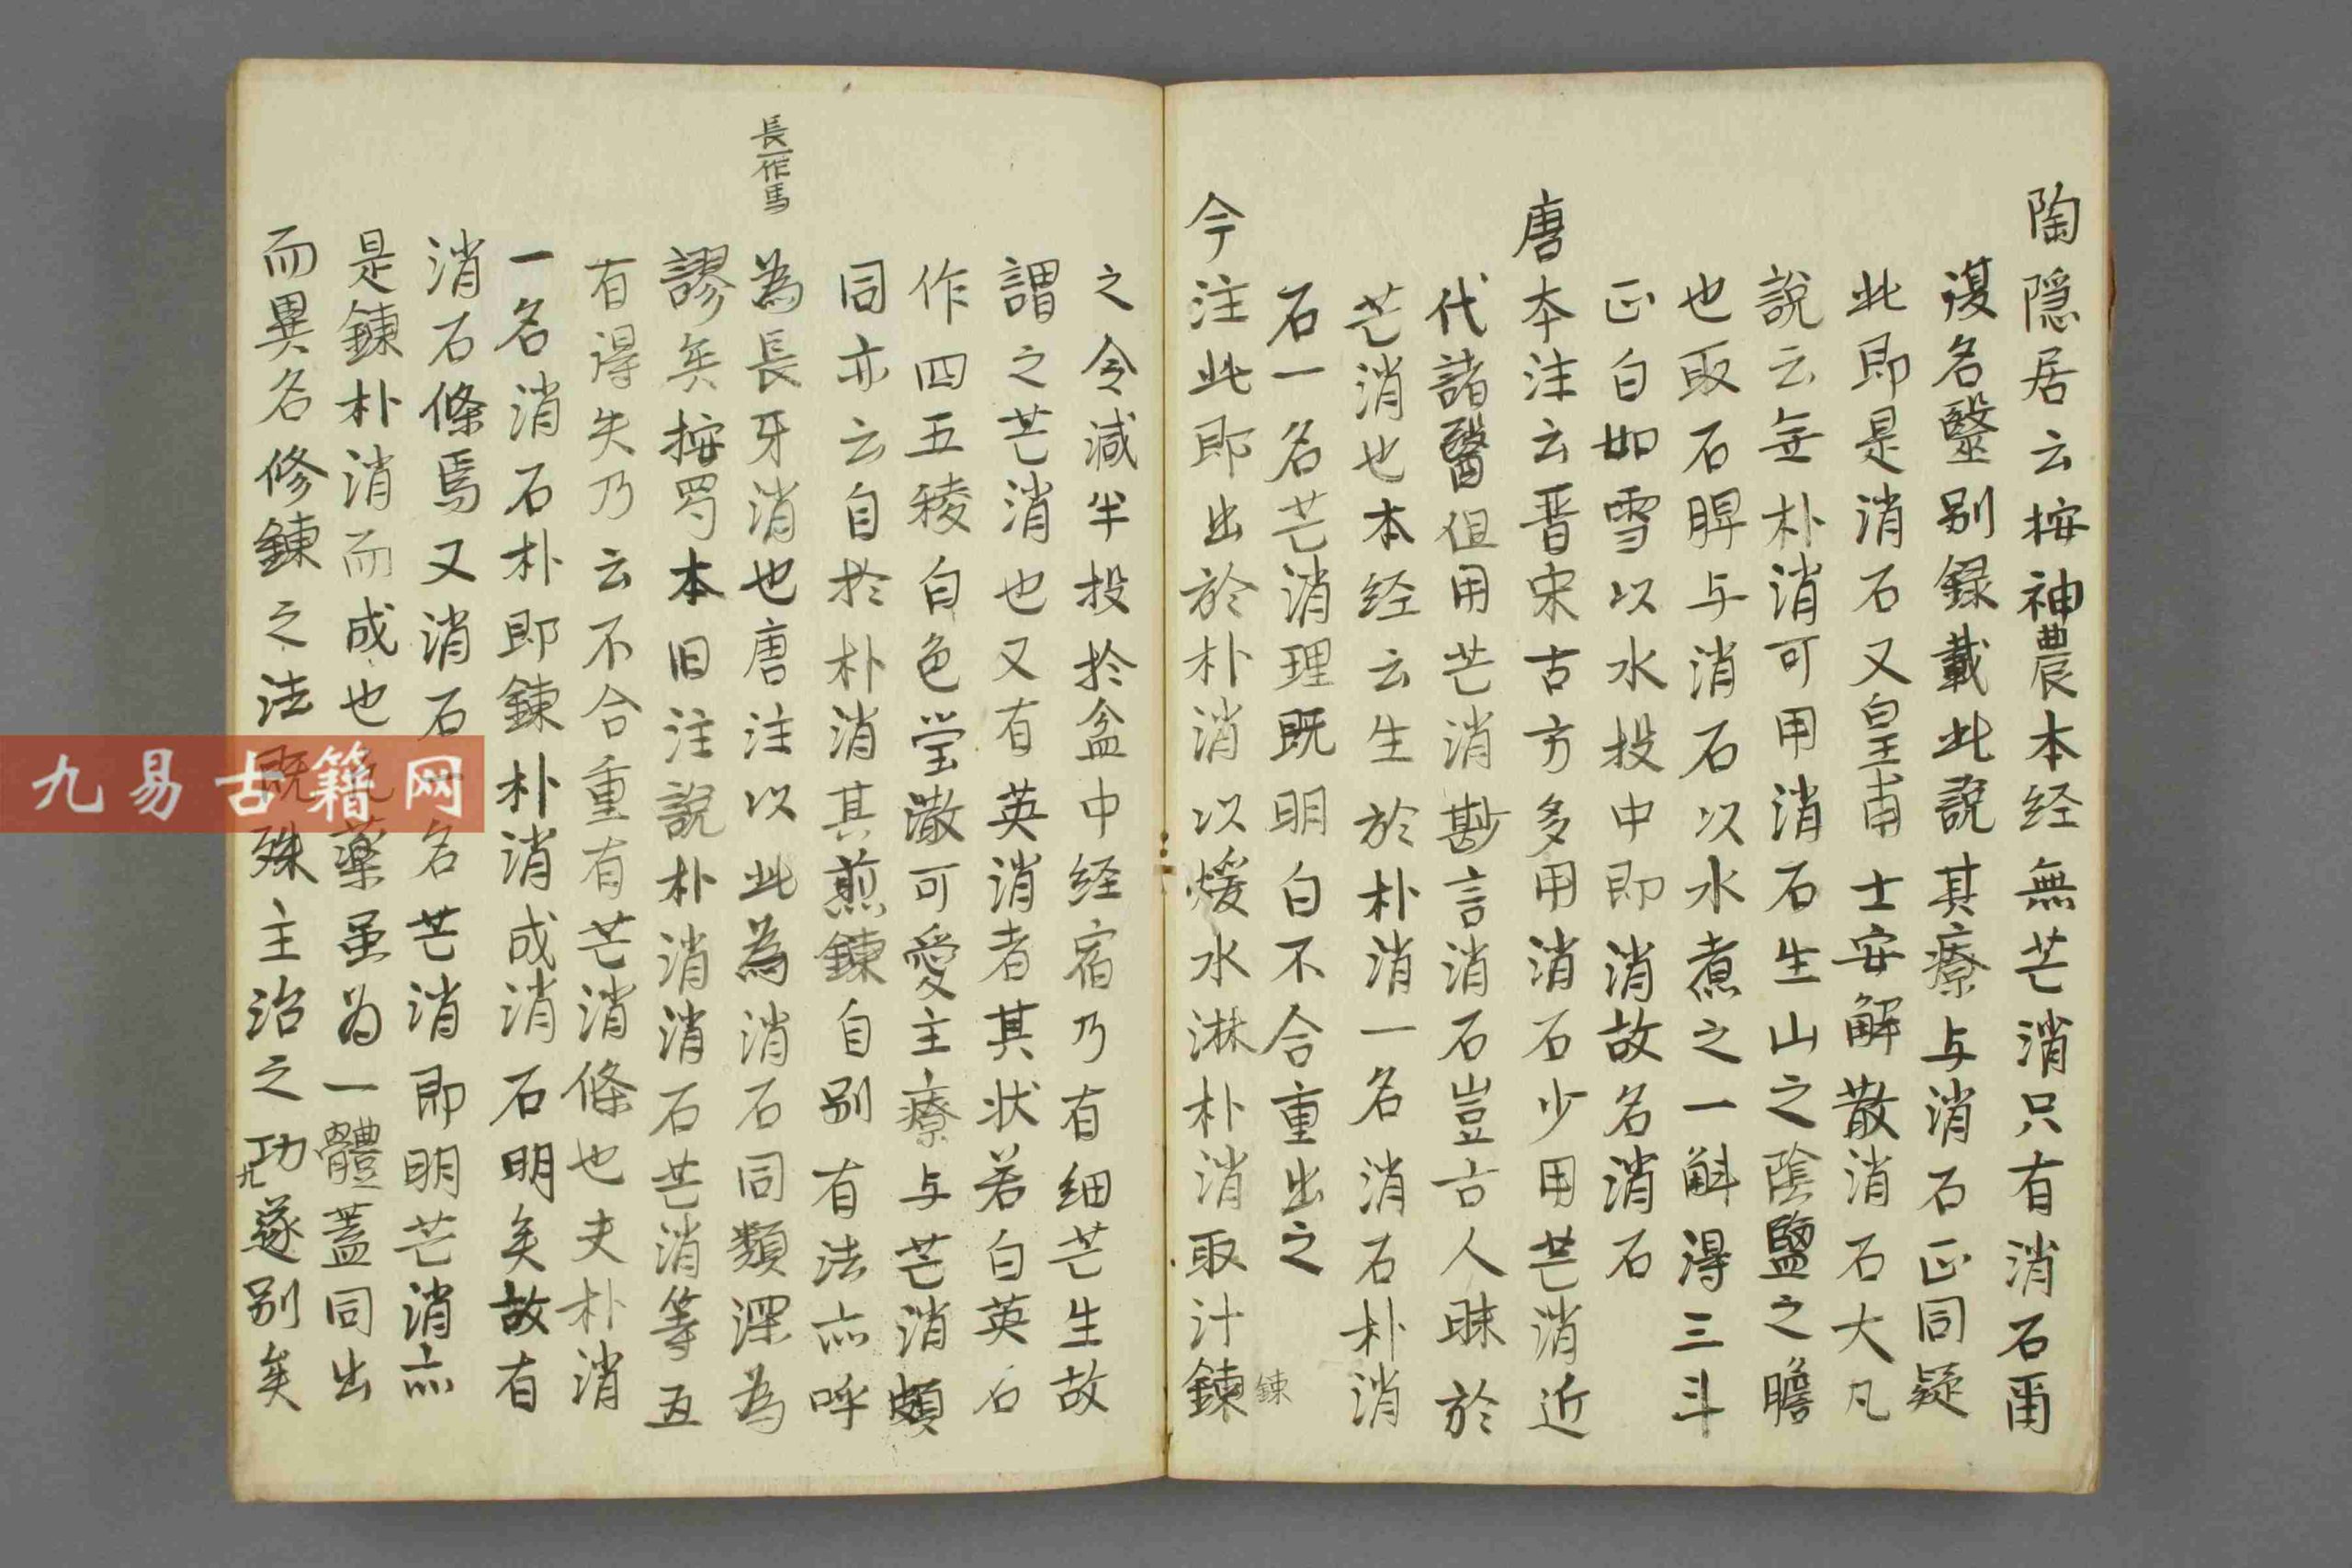 陶隠居云按神農本经無芒消只有消石爾
名毉别録載此說其療与消石正同疑
此即是消石又皇甫士安解散消石大凡
說云無朴消可用消石生山之陰鹽之膽
也取石脾与消石以水煮之一斛得三斗
正白如雪以水投中即消故名消石
唐本注云晋宋古方多用消石少用芒消近
代諸醫但用芒消尠言消石豈古人昧於
芒消也本经云生於朴消一名消石朴消
石一名芒消理既明白不合重出之
今注此即出於朴消以煖水淋朴消取汁鍊
鍊
之令減半投於盆中经宿乃有细芒生故
謂之芒消也又有英消者其状若白英石
作四五稜白色莹澈可愛主療与芒消頗
同亦云自於朴消其煎鍊自别有法亦呼
長一作馬
為長牙消也唐注以此為消石同類深為
謬矣按蜀本旧注說朴消消石芒消等五
有得失乃云不合重有芒消條也夫朴消
一名消石朴即鍊朴消成消石明矣故有
消石條焉又消石一名芒消即明芒消亦
是鍊朴消而成也藥虽為一體蓋同出
而異名修鍊之法既殊主治之功遂别矣
九易古籍网